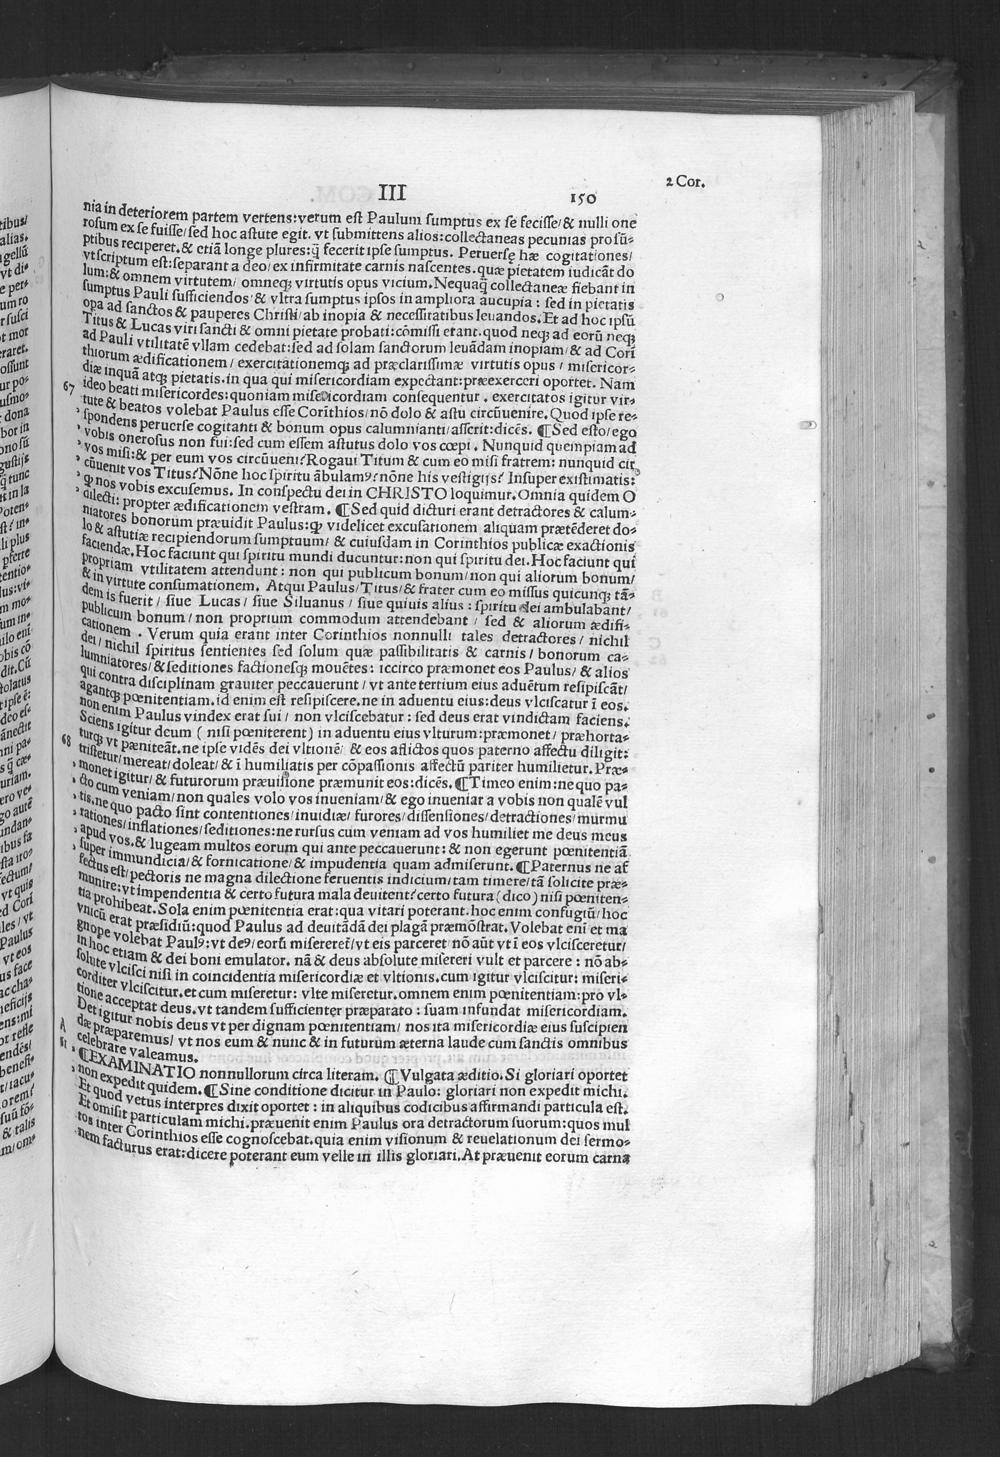 III
150
2 Cor.
nia in deteriorem partem vertens: verum est Paulum sumptus ex se fecisse/ & nulli one
rosum ex se fuisse/ sed hoc astute egit. vt submittens alios: collectaneas pecunias pro sũ-
ptibus reciperet. & etiã longe plures: q̃ fecerit ipse sumptus. Peruersę hæ cogitationes/
vt scriptum est: separant a deo/ ex infirmitate carnis nascentes. quæ pietatem iudicãt do
lum: & omnem virtutem/ omneq; virtutis opus vicium. Nequaq̃ collectaneæ fiebant in
sumptus Pauli sufficiendos & vltra sumptus ipsos in ampliora aucupia: sed in pietatis
opa ad sanctos & pauperes Christi/ ab inopia & necessitatibus leuandos. Et ad hoc ipsũ
Titus & Lucas viri sancti & omni pietate probati: cõmissi erant. quod neq; ad eorũ neq;
ad Pauli vtilitatẽ vllam cedebat: sed ad solam sanctorum leuãdam inopiam/ & ad Corĩ
thiorum ædificationem/ exercitationemq; ad præclarissimæ virtutis opus/ misericor-
diæ inquã atq; pietatis. in qua qui misericordiam expectant: præexerceri oportet. Nam
67 ideo beati misericordes: quoniam misericordiam consequentur. exercitatos igitur vir-
tute & beatos volebat Paulus esse Corĩthios/ nõ dolo & astu circũuenire. Quod ipse re-
, spondens peruerse cogitanti & bonum opus calumnianti/ asserit: dicẽs. ¶Sed esto/ ego
, vobis onerosus non fui: sed cum essem astutus dolo vos cœpi. Nunquid quempiam ad
, vos misi: & per eum vos circũueni? Rogaui Titum & cum eo misi fratrem: nunquid cir
, cũuenit vos Titus? Nõne hoc spiritu ãbulamꝰ? nõne his vestigijs? Insuper existimatis:
, ꝙ nos vobis excusemus. In conspectu dei in CHRISTO loquimur. Omnia quidem O
, dilecti: propter ædificationem vestram. ¶Sed quid dicturi erant detractores & calum-
niatores bonorum præuidit Paulus: ꝙ videlicet excusationem aliquam prætẽderet do-
lo & astutiæ recipiendorum sumptuum/ & cuiusdam in Corinthios publicæ exactionis
faciendæ. Hoc faciunt qui spiritu mundi ducuntur: non qui spiritu dei. Hoc faciunt qui
propriam vtilitatem attendunt: non qui publicum bonum/ non qui aliorum bonum/
& in virtute consumationem. Atqui Paulus/ Titus/ & frater cum eo missus quicunq; tã-
dem is fuerit/ siue Lucas/ siue Siluanus/ siue quiuis alius: spiritu dei ambulabant/
publicum bonum/ non proprium commodum attendebant/ sed & aliorum ædifi-
cationem. Verum quia erant inter Corinthios nonnulli tales detractores/ nichil
dei/ nichil spiritus sentientes sed solum quæ passibilitatis & carnis/ bonorum ca-
lumniatores/ & seditiones factionesq; mouẽtes: iccirco præmonet eos Paulus/ & alios
qui contra disciplinam grauiter peccauerunt/ vt ante tertium eius aduẽtum resipiscãt/
agantq; pœnitentiam. id enim est resipiscere. ne in aduentu eius: deus vlciscatur ĩ eos.
non enim Paulus vindex erat sui/ non vlciscebatur: sed deus erat vindictam faciens.
Sciens igitur deum ( nisi pœniterent) in aduentu eius vlturum: præmonet/ præhorta-
68 turq; vt pæniteãt. ne ipse vidẽs dei vltionẽ/ & eos aflictos quos paterno affectu diligit:
tristetur/ mereat/ doleat/ & ĩ humiliatis per cõpassionis affectũ pariter humilietur. Præ-
, monet igitur/ & futurorum præuisione præmunit eos: dicẽs. ¶Timeo enim: ne quo pa-
, cto cum veniam/ non quales volo vos inueniam/ & ego inueniar a vobis non qualẽ vul
, tis. ne quo pacto sint contentiones/ inuidiæ/ furores/ dissensiones/ detractiones/ murmu
, rationes/ inflationes/ seditiones: ne rursus cum veniam ad vos humiliet me deus meus
, apud vos. & lugeam multos eorum qui ante peccauerunt: & non egerunt pœnitentiã
, super immundicia/ & fornicatione/ & impudentia quam admiserunt. ¶Paternus ne af
fectus est/ pectoris ne magna dilectione feruentis indicium/ tam timere/ tã solicite præ-
munire: vt impendentia & certo futura mala deuitent? certo futura (dico) nisi pœniten-
tia prohibeat. Sola enim pœnitentia erat: qua vitari poterant. hoc enim confugiũ/ hoc
vnicũ erat præsidiũ: quod Paulus ad deuitãdã dei plagã præmõstrat. Volebat enĩ et ma
gnope volebat Paulꝰ: vt deꝰ/ eorũ misereret̃/ vt eis parceret/ nõ aũt vt ĩ eos vlcisceretur/
in hoc etiam & dei boni emulator. nã & deus absolute misereri vult et parcere: nõ ab-
solute vlcisci nisi in coincidentia misericordiæ et vltionis. cum igitur vlciscitur: miseri-
corditer vlciscitur. et cum miseretur: vlte miseretur. omnem enim pœnitentiam: pro vl-
tione acceptat deus. vt tandem sufficienter præparato: suam infundat misericordiam.
Det igitur nobis deus vt per dignam pœnitentiam/ nos ita misericordiæ eius suscipien
A dæ præparemus/ vt nos eum & nunc & in futurum æterna laude cum sanctis omnibus
61 celebrare valeamus.
, ¶EXAMINATIO nonnullorum circa literam. ¶Vulgata æditio. Si gloriari oportet
, non expedit quidem. ¶Sine conditione dicitur in Paulo: gloriari non expedit michi.
Et quod vetus interpres dixit oportet: in aliquibus codicibus affirmandi particula est.
Et omisit particulam michi. præuenit enim Paulus ora detractorum suorum: quos mul
tos inter Corinthios esse cognoscebat. quia enim visionum & reuelationum dei sermo-
nem facturus erat: dicere poterant eum velle in illis gloriari. At præuenit eorum carna